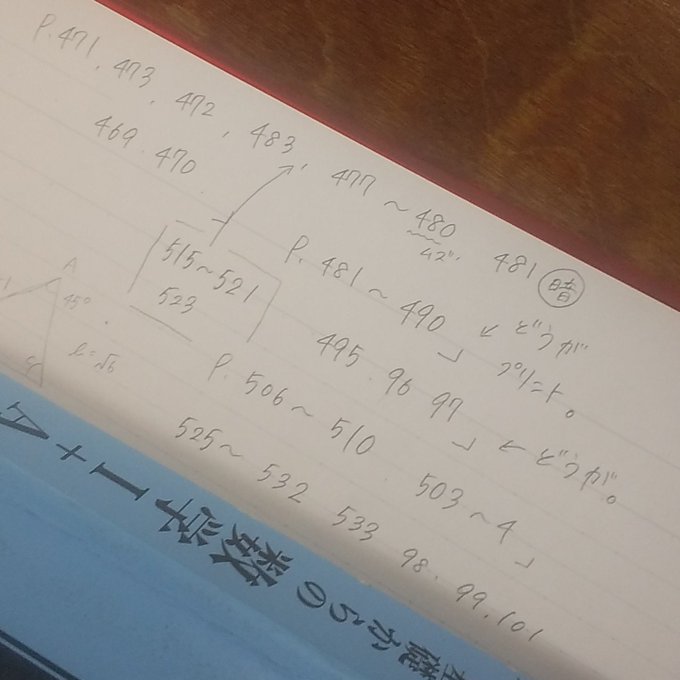 P.471, 473, 472, 483, 477～480 481 暗
469. 470
515～521
523
P. 481～490 ← どうが
プリント。
495. 96 97 ← どうが。
P. 506～510. 503～4
525～532 533 98. 99. 101
A
45°
数学I+A
からの